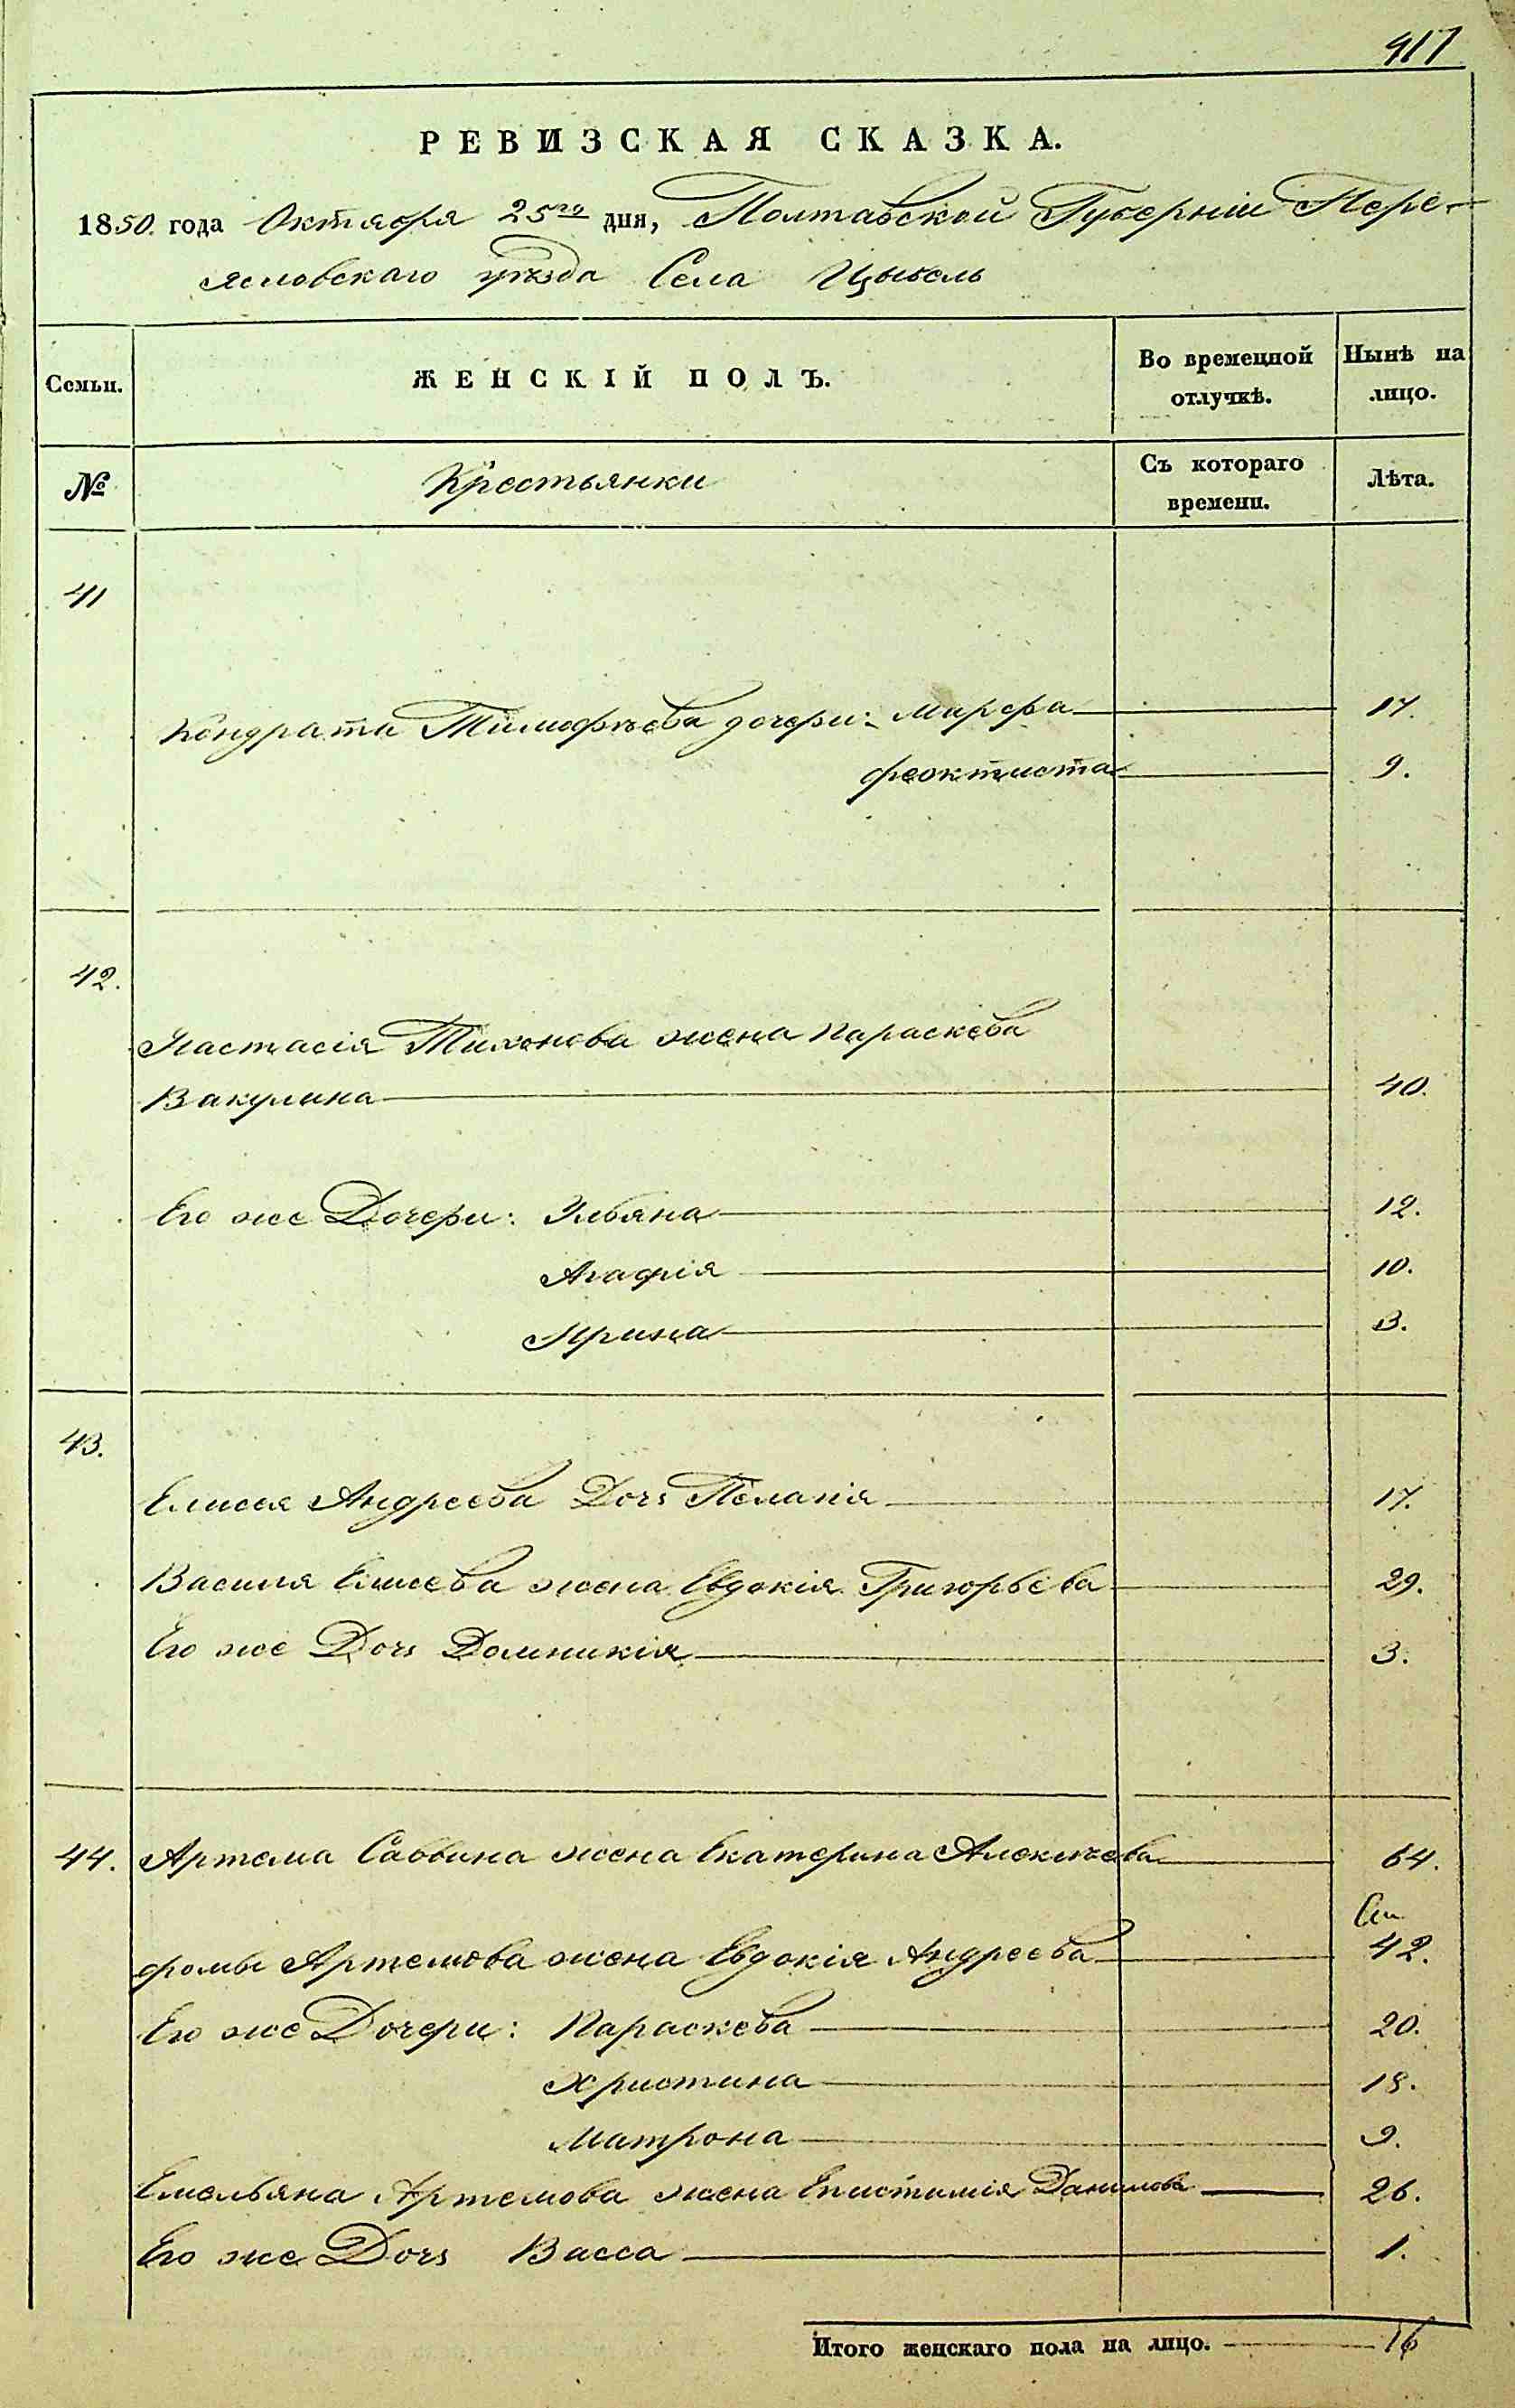 917
РЕВИЗСКАЯ СКАЗКА.
1850. года Октября 25го дня, Полтавской Губерніи Пере-
ясловскаго уѣзда Села Цыбель
Семьи. ЖЕНСКІЙ ПОЛЪ. Во временной отлучкѣ. Нынѣ на лицо.
№ Крестьянки Съ котораго времени. Лѣта.
41
Кондрата Тимофѣева дочери: Марфа 17.
феоктиста 9.
42.
Настасія Тихонова жена Параскева
Вакулина 40.
Его же Дочери: Ульяна 12.
Агафія 10.
Ирина 3.
43.
Елисея Андреева Дочь Пелагія 17.
Василя Елисева жена Евдокія Григорьева 29.
Его же Дочь Домникія 3.
44. Артема Саввина жена Екатерина Алексѣева 64.
фомы Артемова жена Евдокія Андреева 42.
Его же Дочери: Параскева 20.
Христина 18.
Матрона 9.
Емельяна Артемова жена Епистимія Данилова 26.
Его же Дочь Васса 1.
Итого женскаго пола на лицо. 16